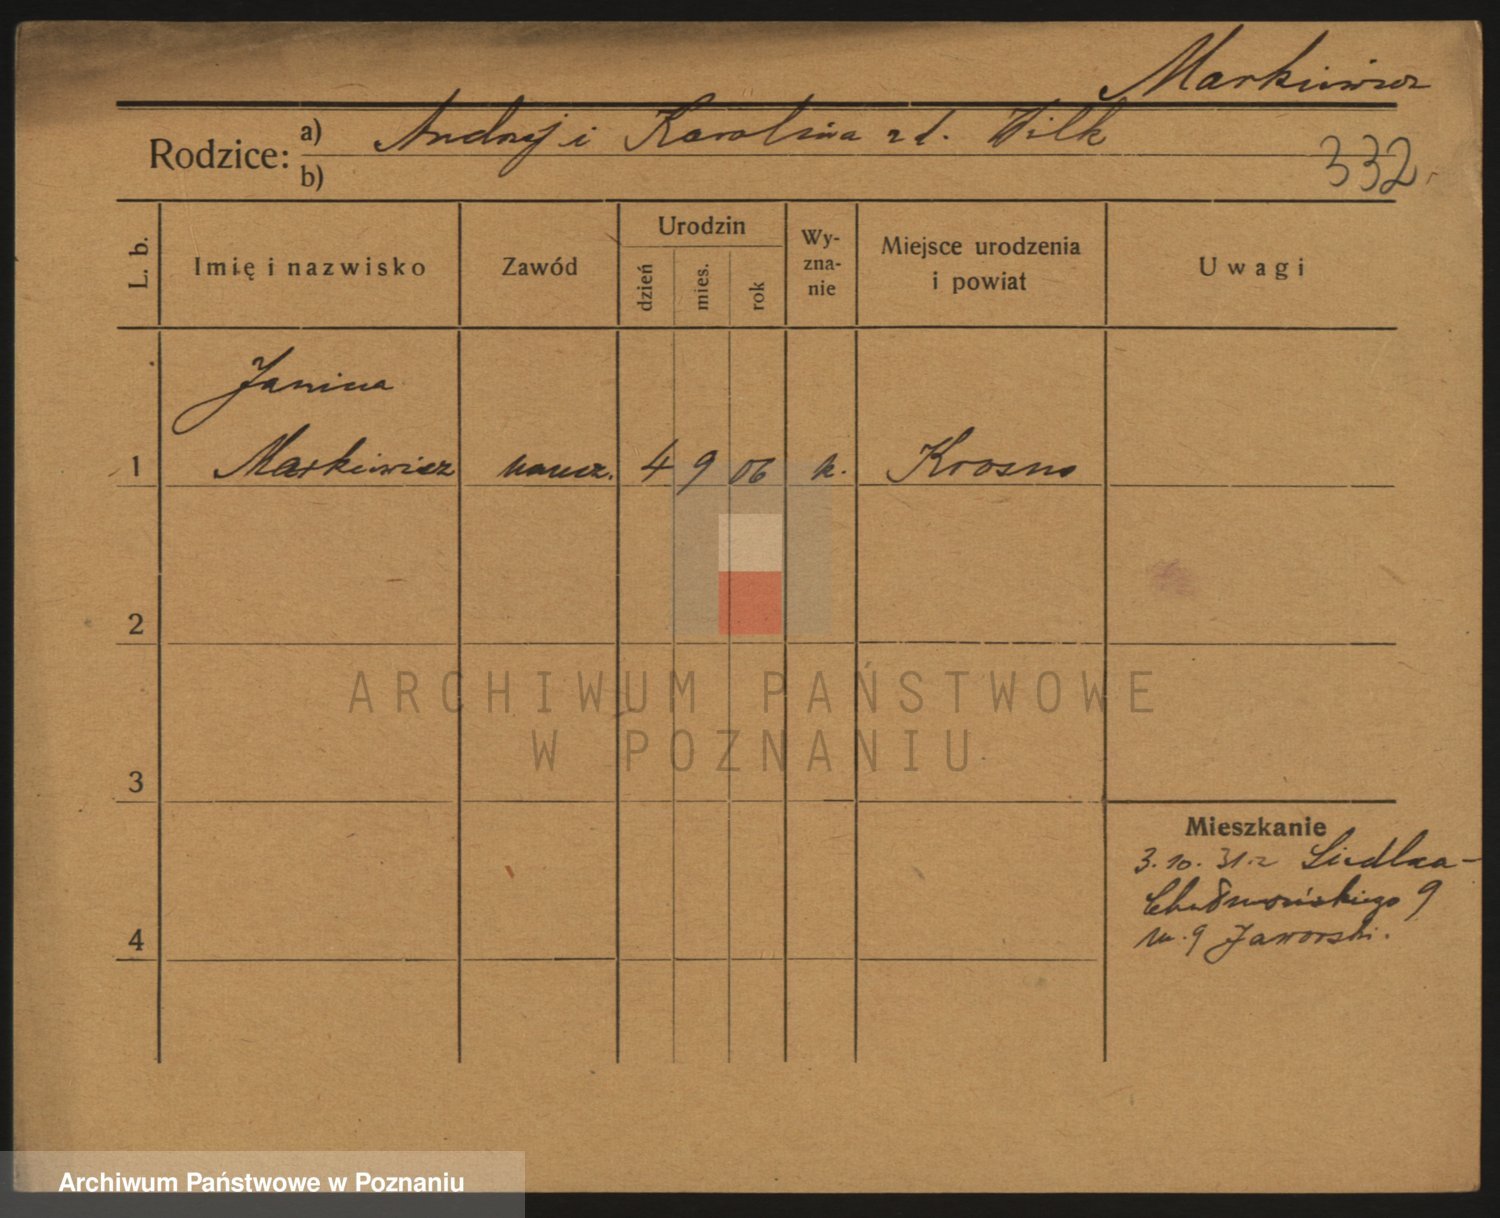 Markiewicz
Rodzice: a) Andrzej i Karolina zd. Wilk
b)
332
L. b.
Imię i nazwisko
Zawód
Urodzin
dzień
mies.
rok
Wy-
zna-
nie
Miejsce urodzenia
i powiat
Uwagi
Janina
1 Markiewicz naucz. 4 9 06 k. Krosno
2
ARCHIWUM PAŃSTWOWE
W POZNANIU
3
Mieszkanie
3.10.31.
9
4
m. 9 Jaworski.
Archiwum Państwowe w Poznaniu